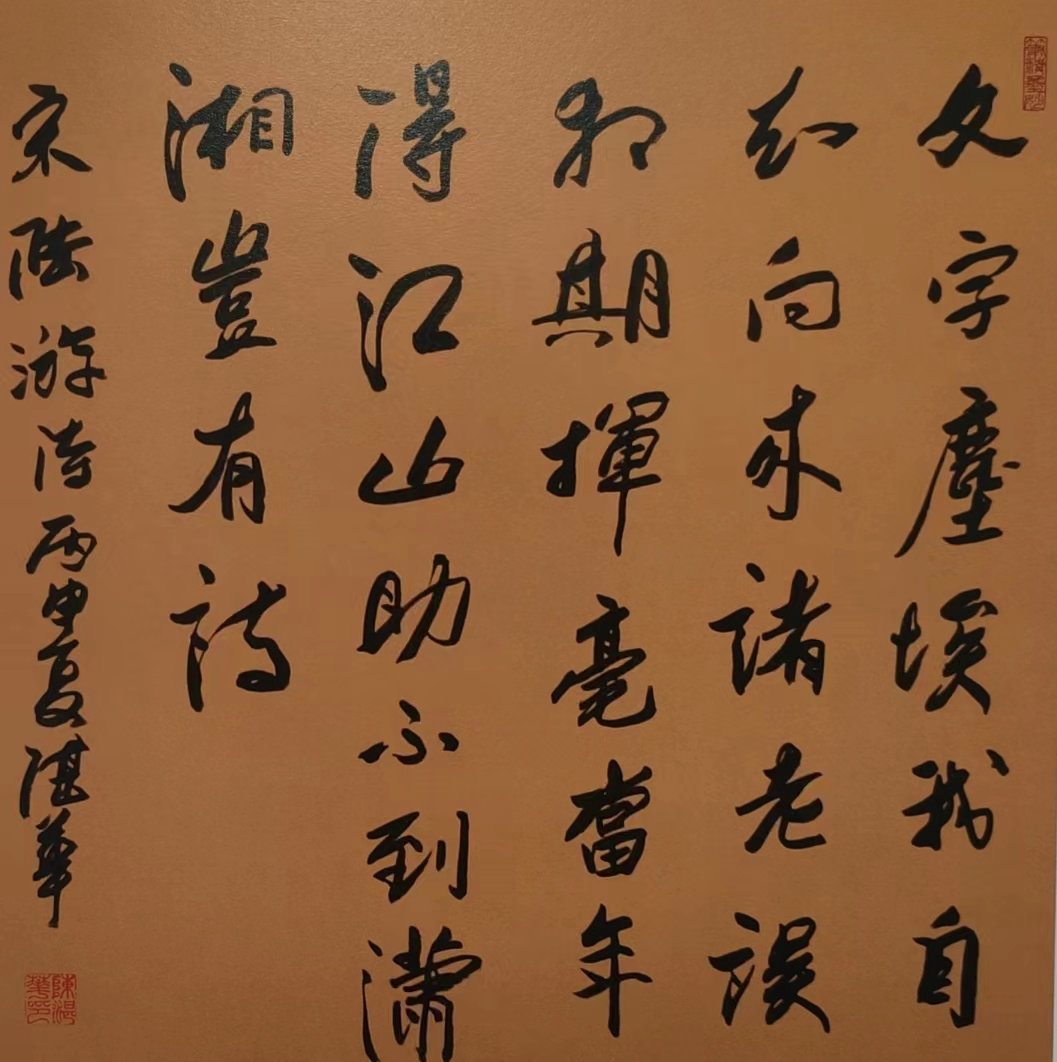 文字塵埃我自
知向來諸老誤
相期揮毫當年
得江山助不到瀟
湘豈有詩
宋陸游詩丙申夏湛華
陳湛華印